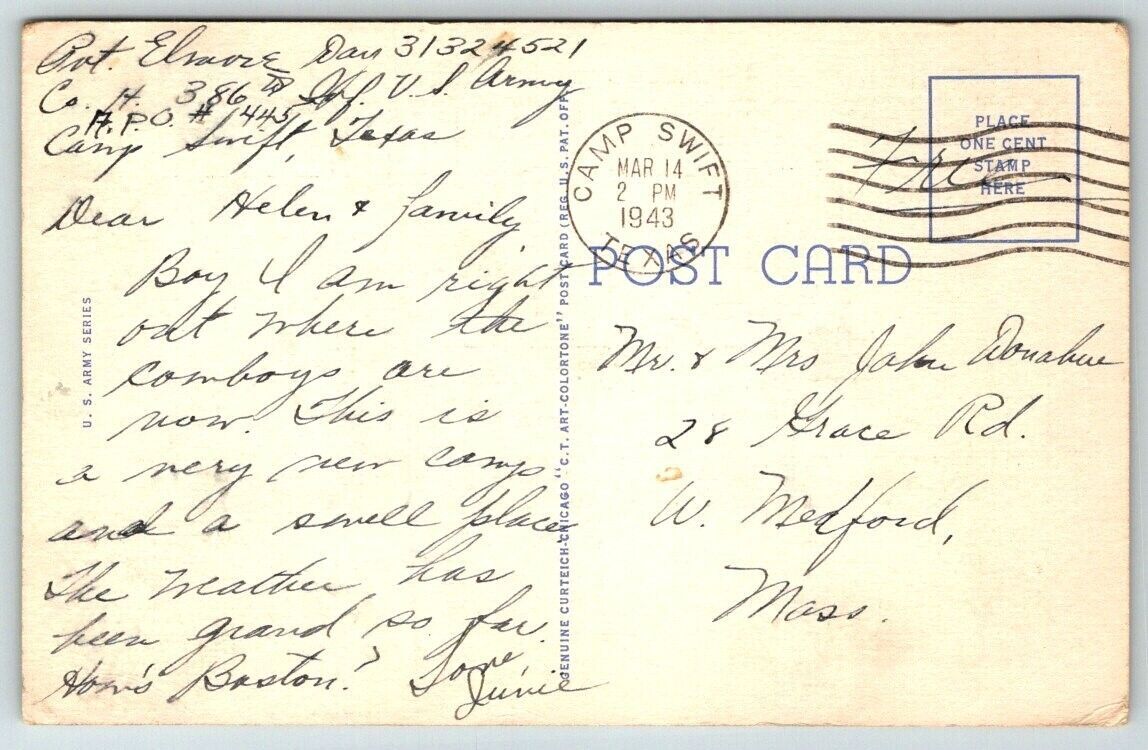 Pvt. Elmore Dan 31324521
Co. H. 386th Inf. U. S. Army
A.P.O. # 445
Camp Swift, Texas
Dear Helen & family
Boy I am right
out where the
cowboys are
now. This is
a very new camp
and a swell place
The weather has
been grand so far.
How's Boston? Love,
Junie
U. S. ARMY SERIES
GENUINE CURTEICH-CHICAGO "C.T. ART-COLORTONE" POST CARD (REG. U.S. PAT. OFF.)
CAMP SWIFT
MAR 14
2 PM
1943
TEXAS
Free
PLACE
ONE CENT
STAMP
HERE
POST CARD
Mr. & Mrs John Donahue
28 Grace Rd.
W. Medford,
Mass.